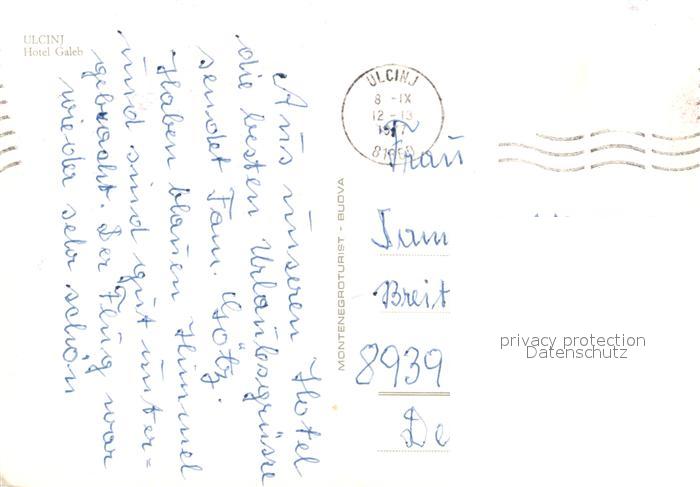 ULCINJ
Hotel Galeb
Aus unseren Hotel
die besten Urlaubsgrüsse
sendet Fam. Götz.
Haben blauen Himmel
und sind gut unter=
gebracht. Der Flug war
wieder sehr schön
MONTENEGROTURIST - BUDVA
ULCINJ
8 -IX
12 - 13
Frau
Breit
8939
De
privacy protection
Datenschutz